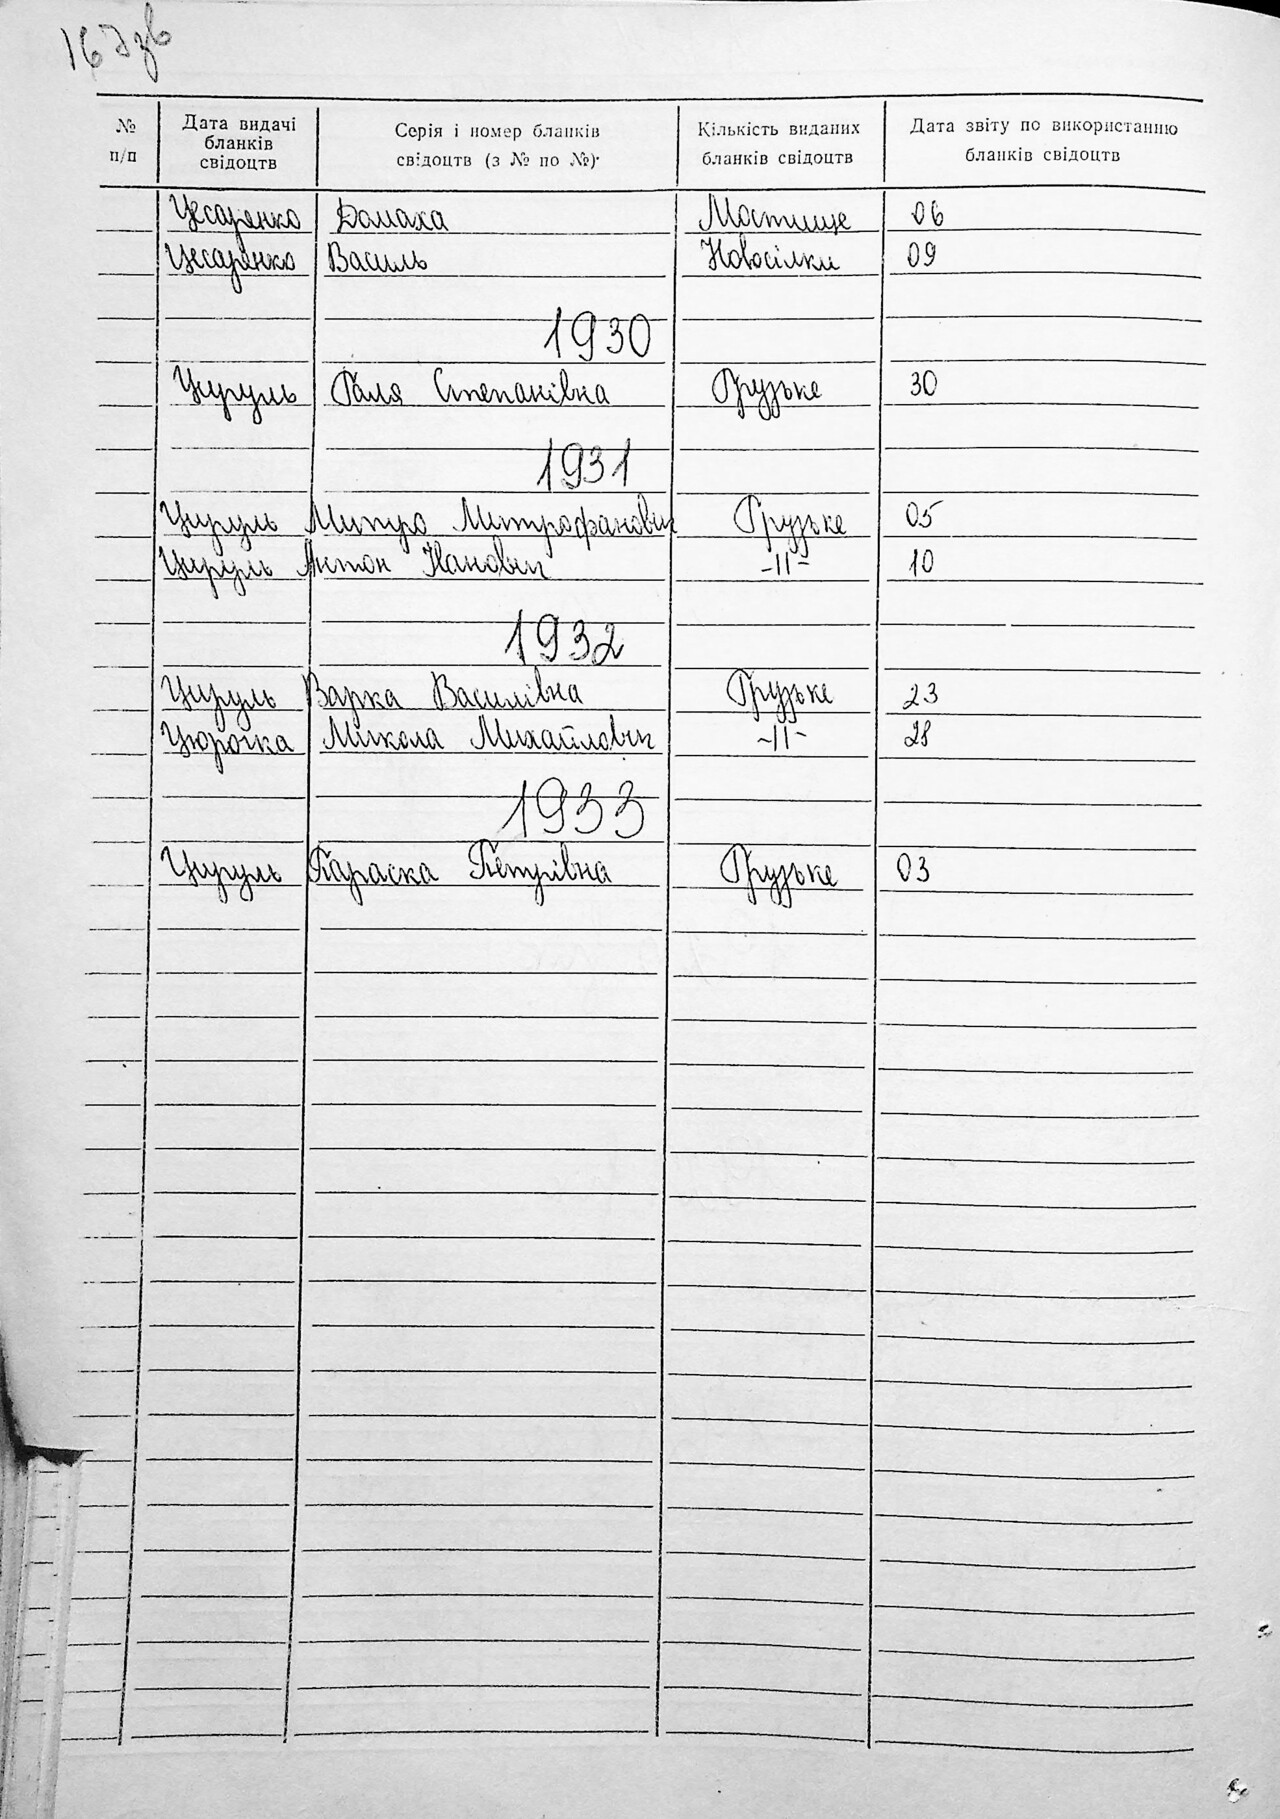 167зв
№ п/п
Дата видачі бланків свідоцтв
Серія і номер бланків свідоцтв (з № по №)
Кількість виданих бланків свідоцтв
Дата звіту по використанню бланків свідоцтв
Цесаренко Домаха Мостище 06
Цесаренко Василь Новосілки 09
1930
Цируль Галя Степанівна Грузьке 30
1931
Цируль Митро Митрофанович Грузьке 05
Цируль Антон Іванович -||- 10
1932
Цируль Варка Василівна Грузьке 23
Цюрочка Микола Михайлович -||- 28
1933
Цируль Параска Петрівна Грузьке 03